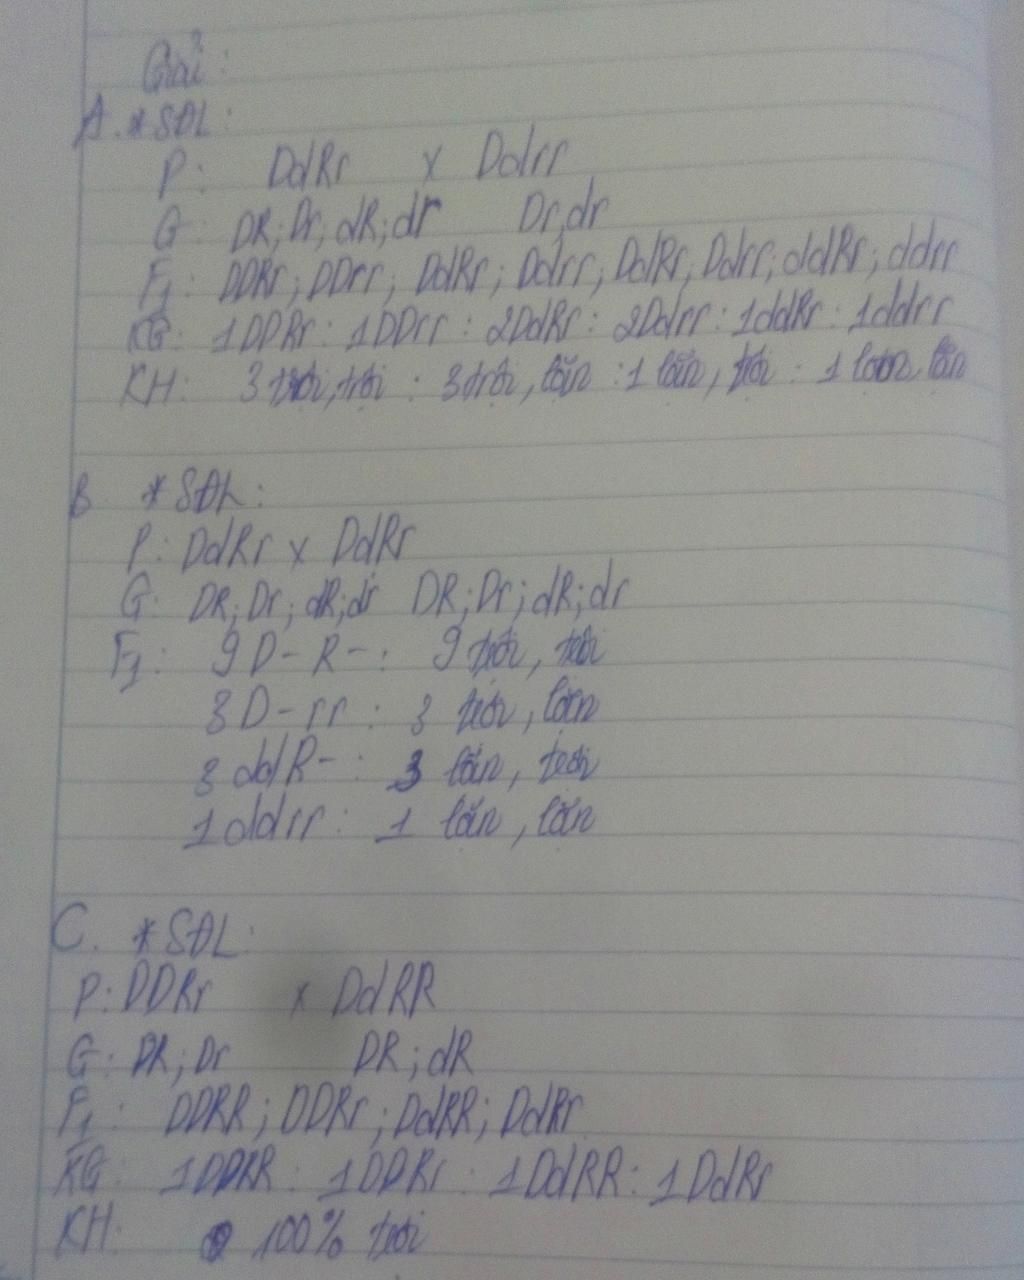 Giải:
A. * SĐL:
P: DdRr x Ddrr
G: DR; Dr; dR; dr Dr, dr
F1: DDRr; DDrr; DdRr; Ddrr; DdRr; Ddrr; ddRr; ddrr
KG: 1DDRr : 1DDrr : 2DdRr : 2Ddrr : 1ddRr : 1ddrr
KH: 3 trội, trội : 3 trội, lặn : 1 lặn, trội : 1 lặn, lặn
B * SĐL:
P: DdRr x DdRr
G: DR; Dr; dR; dr DR; Dr; dR; dr
F1: 9 D-R-: 9 trội, trội
3 D-rr : 3 trội, lặn
3 ddR- : 3 lặn, trội
1 ddrr : 1 lặn, lặn
C. * SĐL:
P: DDRr x DdRR
G: DR; Dr DR; dR
F1: DDRR; DDRr; DdRR; DdRr
KG: 1DDRR : 1DDRr : 1DdRR : 1DdRr
KH: 100% trội